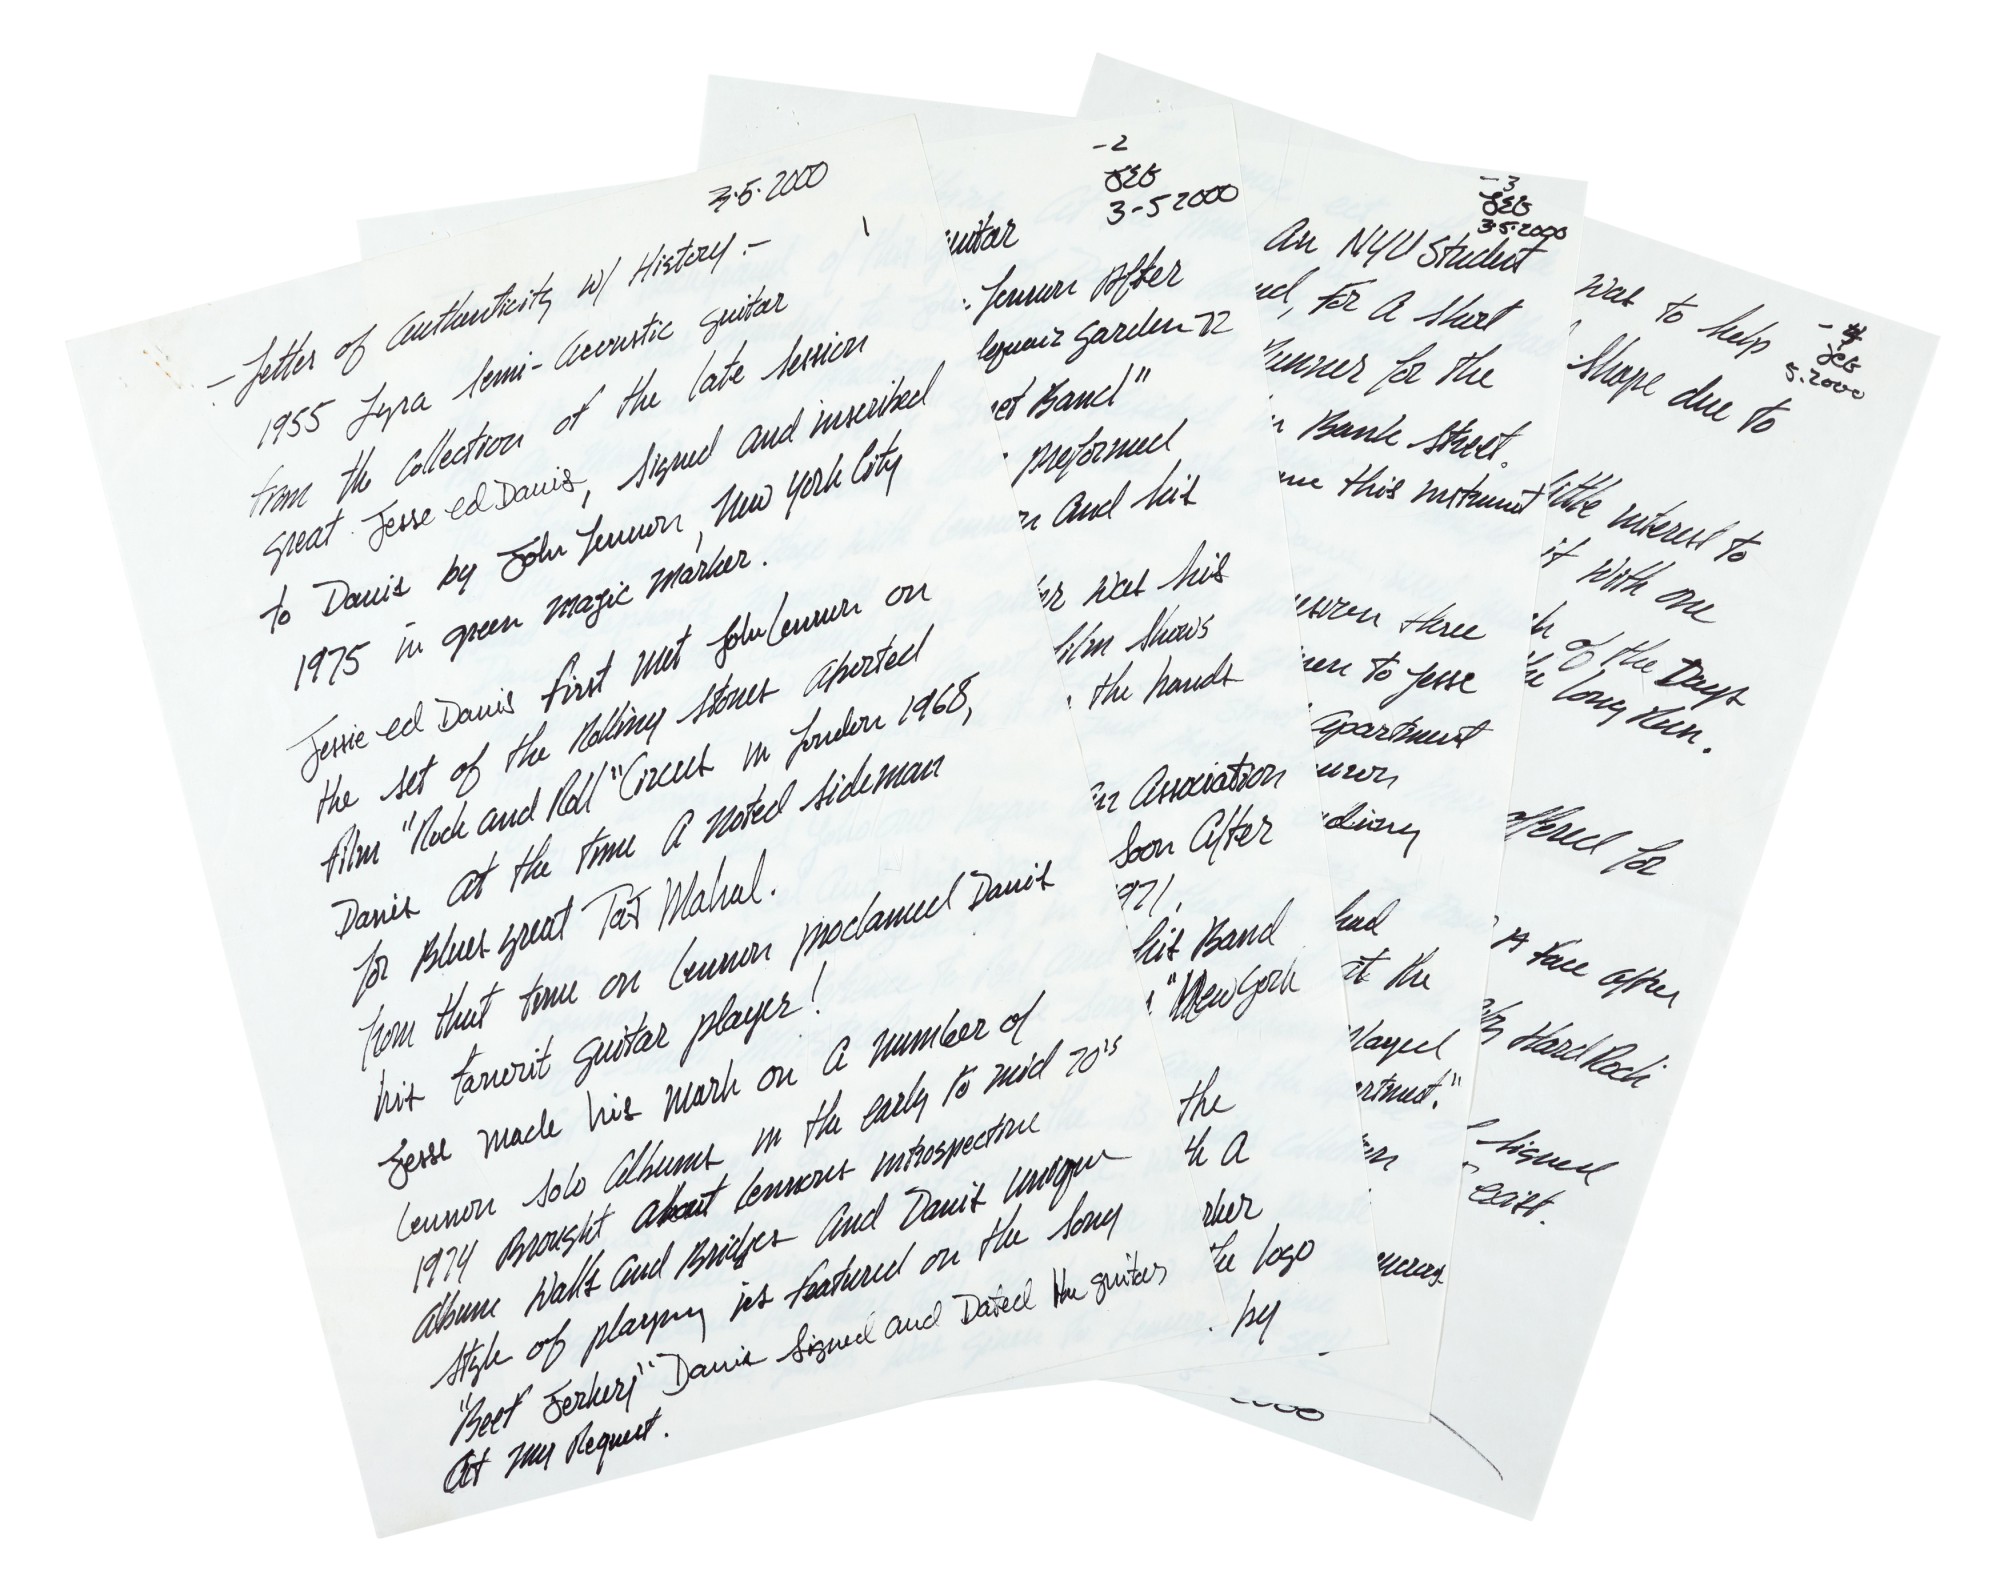 3.5.2000
1
- Letter of Authenticity w/ History. -
1955 Lyra Semi-Acoustic guitar
from the Collection of the late session
great Jesse ed Davis, signed and inscribed
to Davis by John Lennon, New York City
1975 in green magic marker.
Jessie ed Davis first met John Lennon on
the set of the Rolling Stones aborted
film "Rock and Roll" Circus in London 1968,
Davis at the time A Noted sideman
for Blues great Taj Mahal.
from that time on Lennon proclamed Davis
his favorit guitar player!
Jesse made his mark on A number of
Lennon solo Albums in the early to mid 70's
1974 Brought about Lennons introspective
album Walls and Bridges and Davis unique
style of playing is featured on the song
"Beef Jerkerj" Davis signed and Dated the guitar
At my Request.
-2
3-5 2000
guitar
Lennon After
Garden 72
et Band"
preformed
and his
was his
film shows
the hands
Association
Soon After
971,
his Band
"New York
the
th A
rker
the logo
by
-3
3.5.2000
An NYU Student
, for A short
for the
Bank Street.
this instrument
three
to Jesse
Apartment
had
at the
layed
artment."
-4
5.2000
was to help
shape due to
little interest to
it with one
of the Days
the long Run.
offered for
A Face after
Hard Rock
signed
exist.